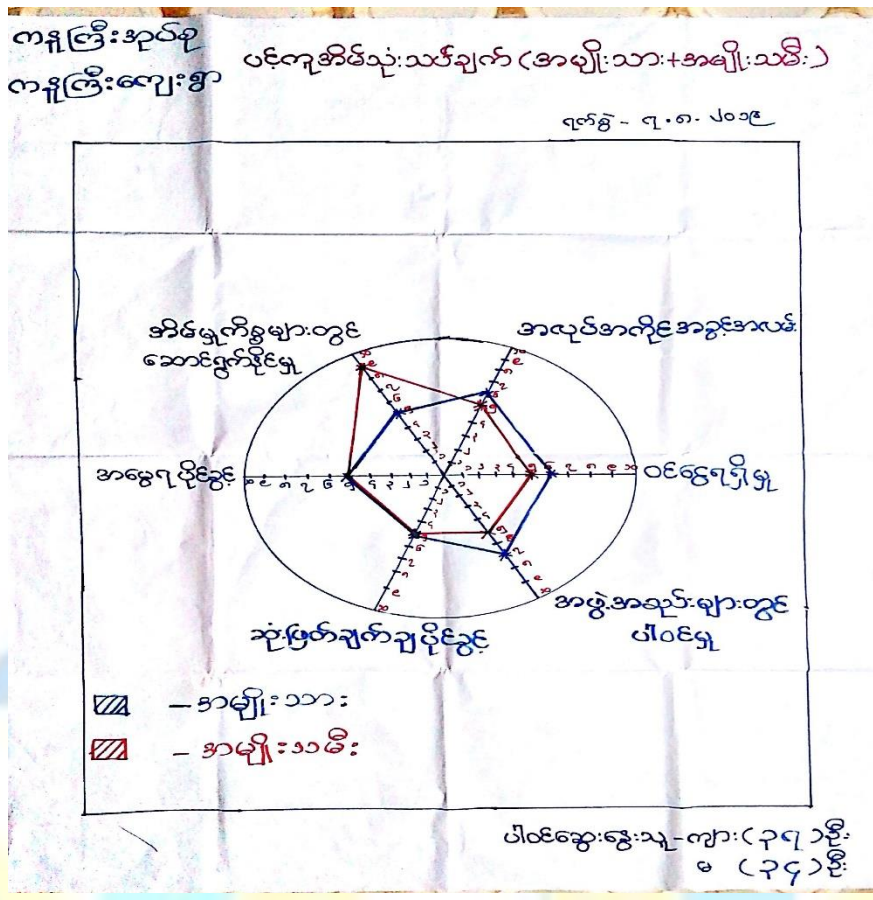 ကနူကြီးအုပ်စု
ကနူကြီးကျေးရွာ
ပင့်ကူအိမ်သုံးသပ်ချက် (အမျိုးသား+အမျိုးသမီး)
ရက်စွဲ - ၇.၈.၂၀၁၉
အိမ်မှုကိစ္စများတွင်
ဆောင်ရွက်နိုင်မှု
အလုပ်အကိုင်အခွင့်အလမ်း
အမွေရပိုင်ခွင့်
ဝင်ငွေရရှိမှု
ဆုံးဖြတ်ချက်ချပိုင်ခွင့်
အဖွဲ့အစည်းများတွင်
ပါဝင်မှု
- အမျိုးသား
- အမျိုးသမီး
ပါဝင်ဆွေးနွေးသူ-ကျား(၃၇)ဦး
မ (၃၄)ဦး